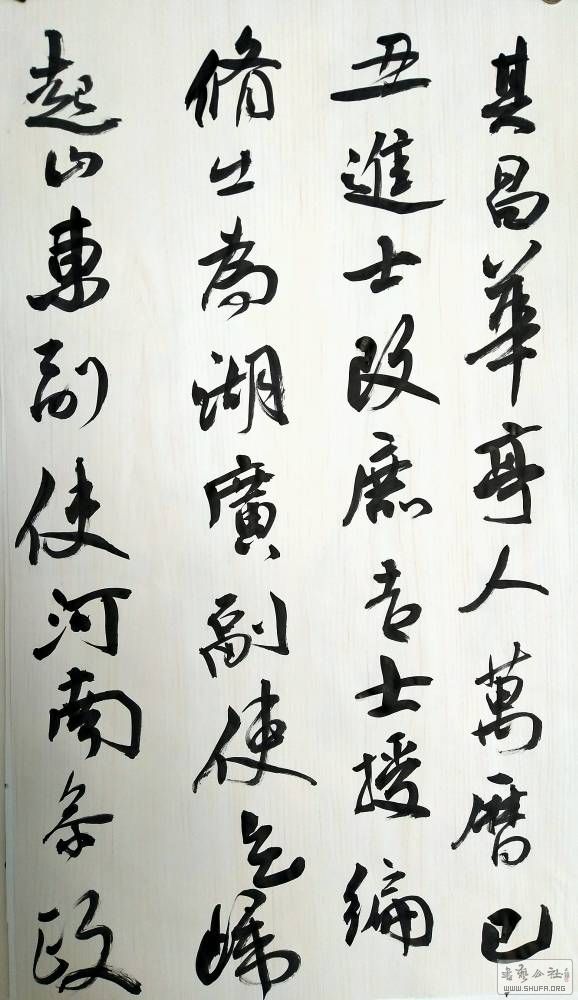 其昌華亭人萬曆己
丑進士改庶吉士授編
脩出為湖廣副使乞歸
起山東副使河南參政
書藝公社
WWW.SHUFA.ORG